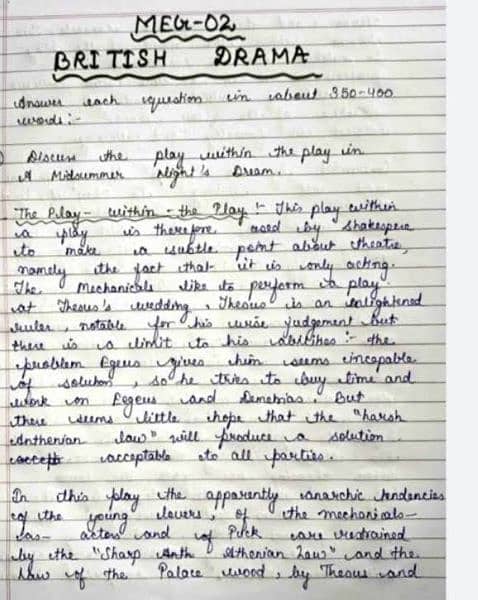 MEG-02
BRITISH DRAMA
Answer each question in about 350-400
words:-
Discuss the play within the play in
A Midsummer Night's Dream.
The Play- within - the Play :- This play within
a play is therefore used by Shakespere
to make a subtle point about theatre,
namely the fact that it is only acting.
The Mechanicals like to perform a play
at Theseus's wedding. Theseus is an enlightened
ruler, notable for his wise judgement but
there is a limit to his abilities :- the
problem Egeus gives him seems incapable
of solution, so he tries to buy time and
work on Eegeus and Demetrias. But
there seems little hope that the "harsh
Anthenian law" will produce a solution
acceptable to all parties.
In this play the apparently anarchic tendencies
of the young lovers, of the mechanicals-
as- actors and of Puck are restrained
by the "Sharp Anth Athenian Law" and the
law of the Palace wood, by Theseus and